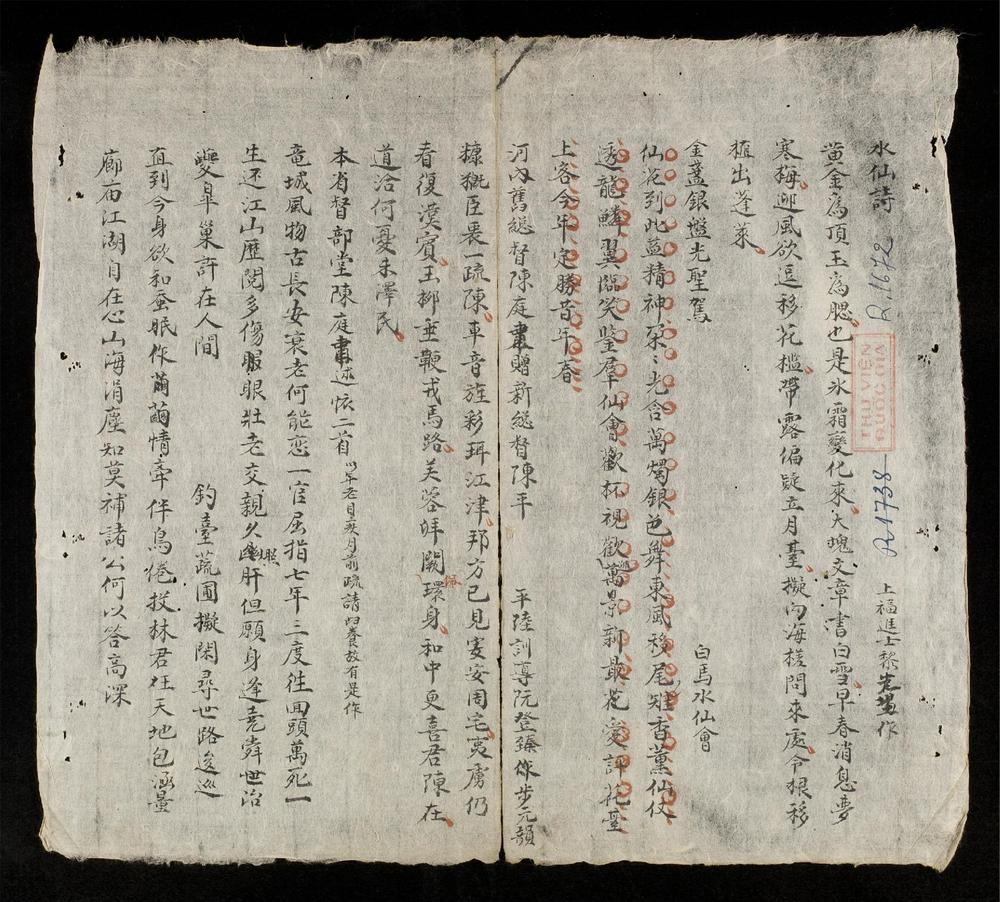 水仙詩 上福進士黎先塲作
R.1672
R.1738
THƯ VIỆN
QUỐC GIA
黄金為頂玉為腮也是氷霜變化來大塊文章書白雪早春消息夢
寒梅迎風欲逗移花檻帶露偏疑立月臺擬向海槎問來處令根移
植出蓬萊
金盞銀盤光聖駕 白馬水仙會
仙花到此益精神朶〻光含萬燭銀色舞東風移尾雉香薰仙仗
透龍鱗翼臨笑鑒羣仙會歡杯視歡萬景新最花愛評花臺
上客今年定勝昔年春
河內舊總督陳庭肅贈新總督陳平 平陸訓導阮登臻作步元韻
糠粃臣裏一疏陳車音旌彩珥江津邦方已見寔安周宅夷虜仍
看復漢賓玉柳垂鞭戎馬路芙蓉拜闕環身和中更喜君陳在
道洽何憂未澤民
本省督部堂陳庭肅述懷二首 以年老目疾月前疏請回養故有是作
竜城風物古長安衰老何能恋一官屈指七年三度徃回頭萬死一
生还江山歷閱多傷眼壯老交親久照肝但願身逢堯舜世治
夔皐巢許在人間 釣臺蔬圃擬閑尋世路逡巡
直到今身欲和蚕眠作繭情牽伴鳥倦投林君在天地包涵量
廊庙江湖自在心山海涓塵知莫補諸公何以答高深